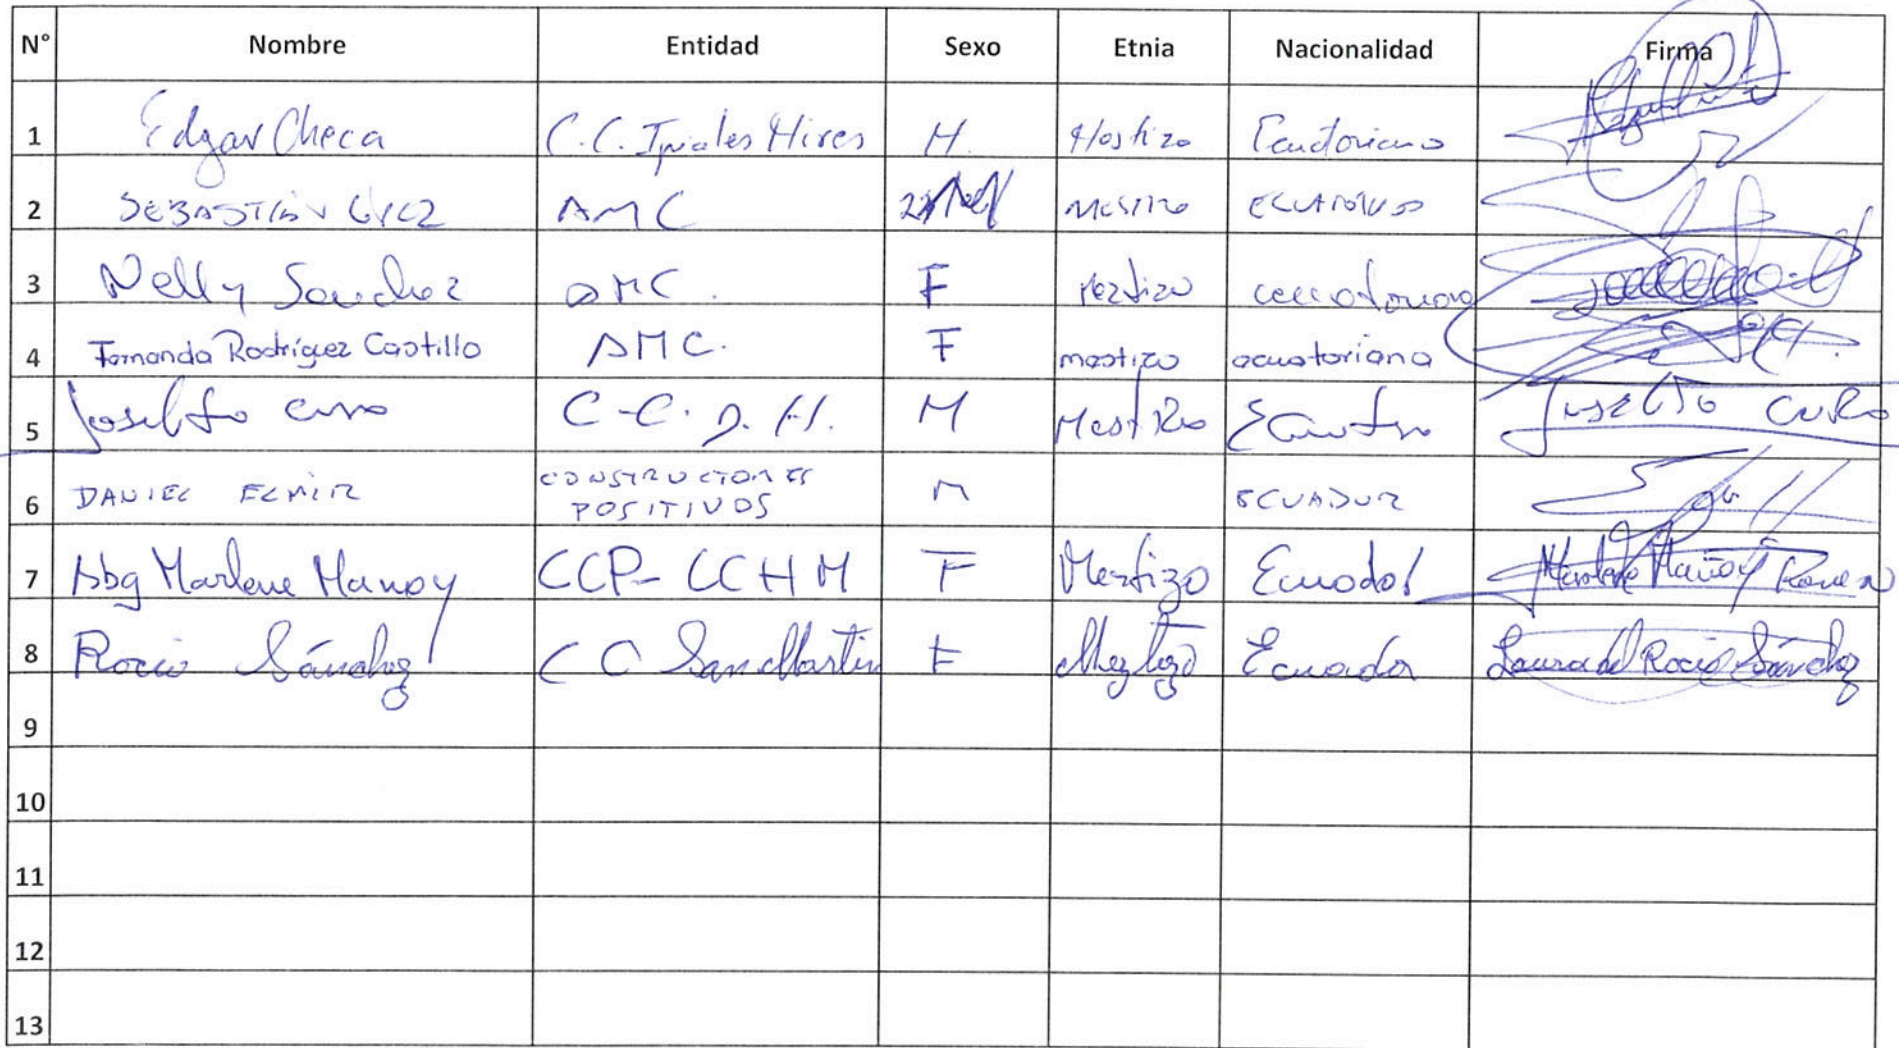 N° Nombre Entidad Sexo Etnia Nacionalidad Firma
1 Edgar Checa C.C. Ipiales Mires H. Ecuatoriano
2 SEBASTIÁN AMC
3 Nelly Sanchez AMC. F Meztizo ecuatoriana
4 Fernanda Rodríguez Castillo AMC. F mestizo ecuatoriana
5 Joselito C.C. D. H. M Mestizo Joselito CURO
6 DANIEL CONSTRUCTORES POSITIVOS M ECUADOR
7 Abg Marlene Manoy CCP- CCHM F Mestizo Ecuador Marlene
8 Rocio Sánchez CC San Martin F Meztizo Ecuador Laura del Rocio Sánchez
9
10
11
12
13